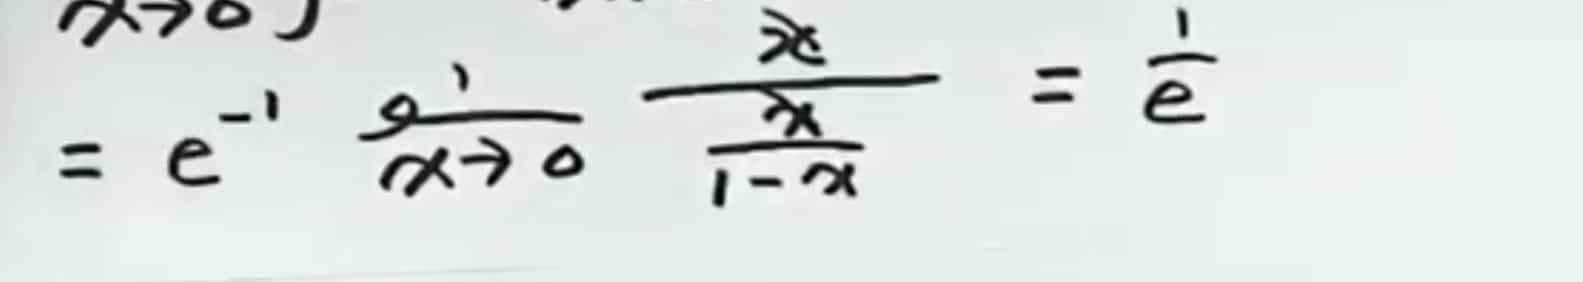 x→0
= e⁻¹ lim x→0 x/(x/(1-x)) = 1/e